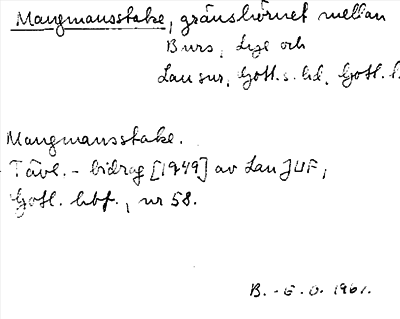 Mangmansstake, gränshörnet mellan
Burs, Lye och
Lau snr, Gotl. s. hd, Gotl. l.
Mangmansstake.
Tävl. - bidrag [1949] av Lau JUF,
Gotl. hbf., nr 58.
B. - G. O. 1961.